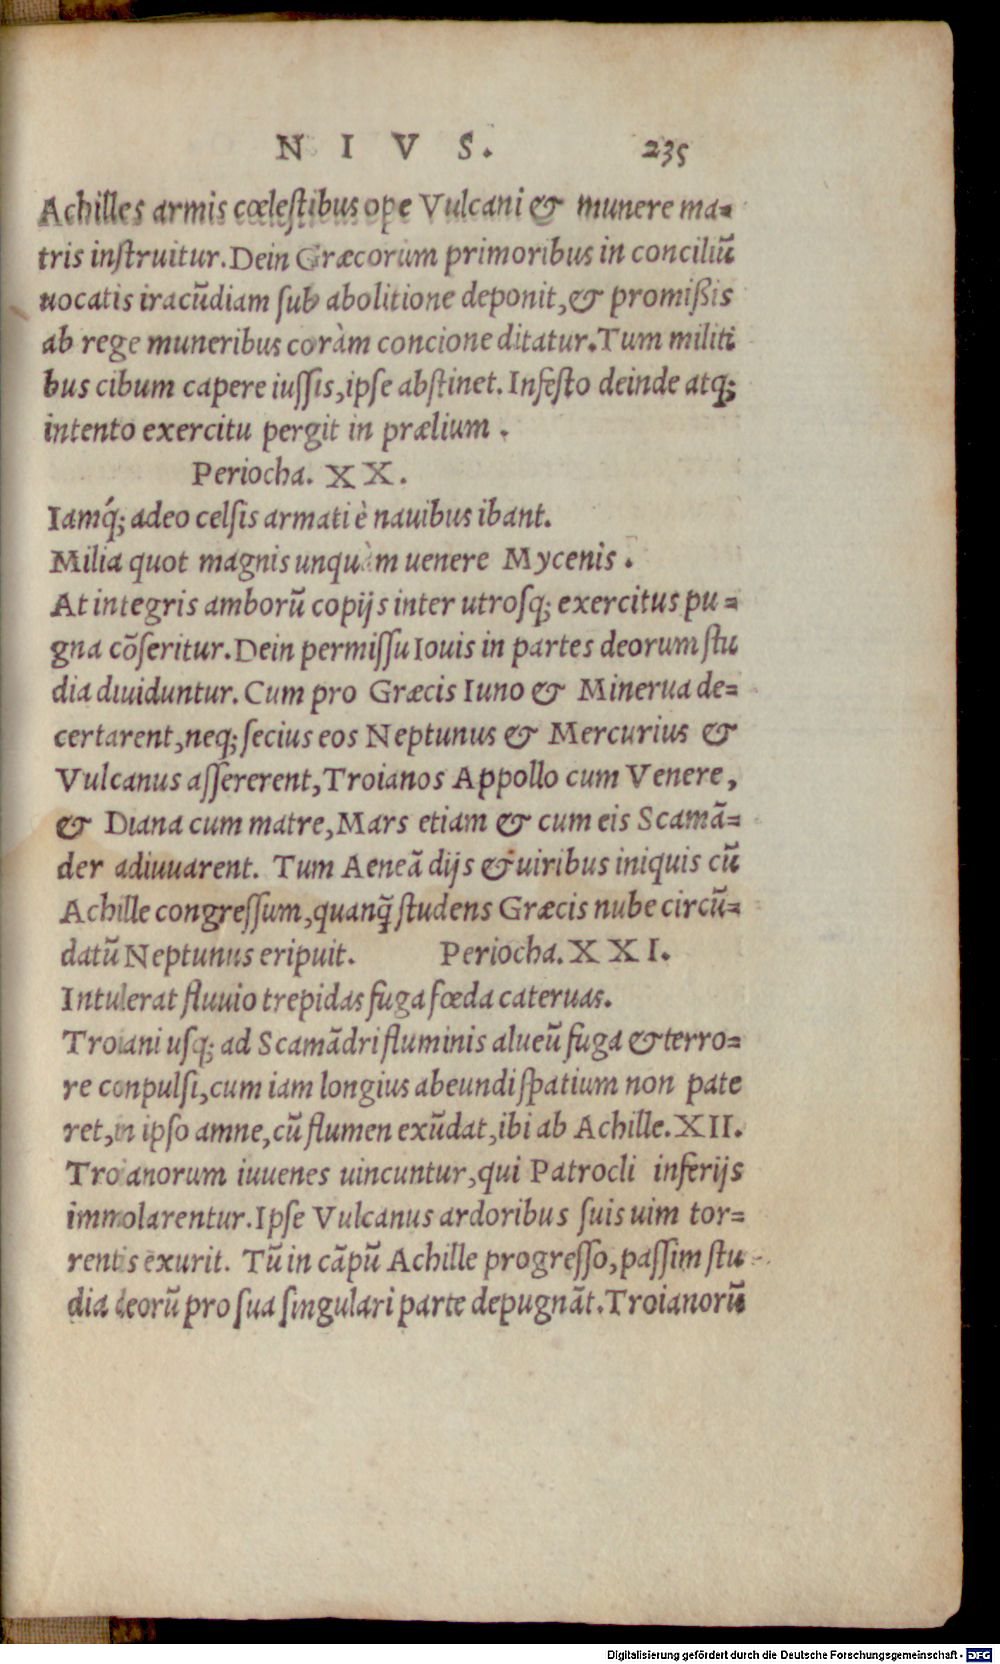 N I V S. 235
Achilles armis cœleſtibus ope Vulcani & munere ma=
tris inſtruitur. Dein Græcorum primoribus in conciliũ
uocatis iracũdiam ſub abolitione deponit, & promißis
ab rege muneribus coràm concione ditatur. Tum militi
bus cibum capere iuſſis, ipſe abſtinet. Infeſto deinde atq;
intento exercitu pergit in prælium.
Periocha. X X.
Iamq́; adeo celſis armati è nauibus ibant.
Milia quot magnis unquàm uenere Mycenis.
At integris amborũ copijs inter utroſq; exercitus pu=
gna cõſeritur. Dein permiſſu Iouis in partes deorum ſtu
dia diuiduntur. Cum pro Græcis Iuno & Minerua de=
certarent, neq; ſecius eos Neptunus & Mercurius &
Vulcanus aſſererent, Troianos Appollo cum Venere,
& Diana cum matre, Mars etiam & cum eis Scamã=
der adiuuarent. Tum Aeneã dijs & uiribus iniquis cũ
Achille congreſſum, quanq̃ ſtudens Græcis nube circũ=
datũ Neptunus eripuit. Periocha. X X I.
Intulerat fluuio trepidas fuga fœda cateruas.
Troiani uſq; ad Scamãdri fluminis alueũ fuga & terro=
re conpulſi, cum iam longius abeundi ſpatium non pate
ret, in ipſo amne, cũ flumen exũdat, ibi ab Achille. XII.
Troianorum iuuenes uincuntur, qui Patrocli inferijs
immolarentur. Ipſe Vulcanus ardoribus ſuis uim tor=
rentis exurit. Tũ in cãpũ Achille progreſſo, paſſim ſtu
dia deorũ pro ſua ſingulari parte depugnãt. Troianorũ
Digitalisierung gefördert durch die Deutsche Forschungsgemeinschaft - DFG